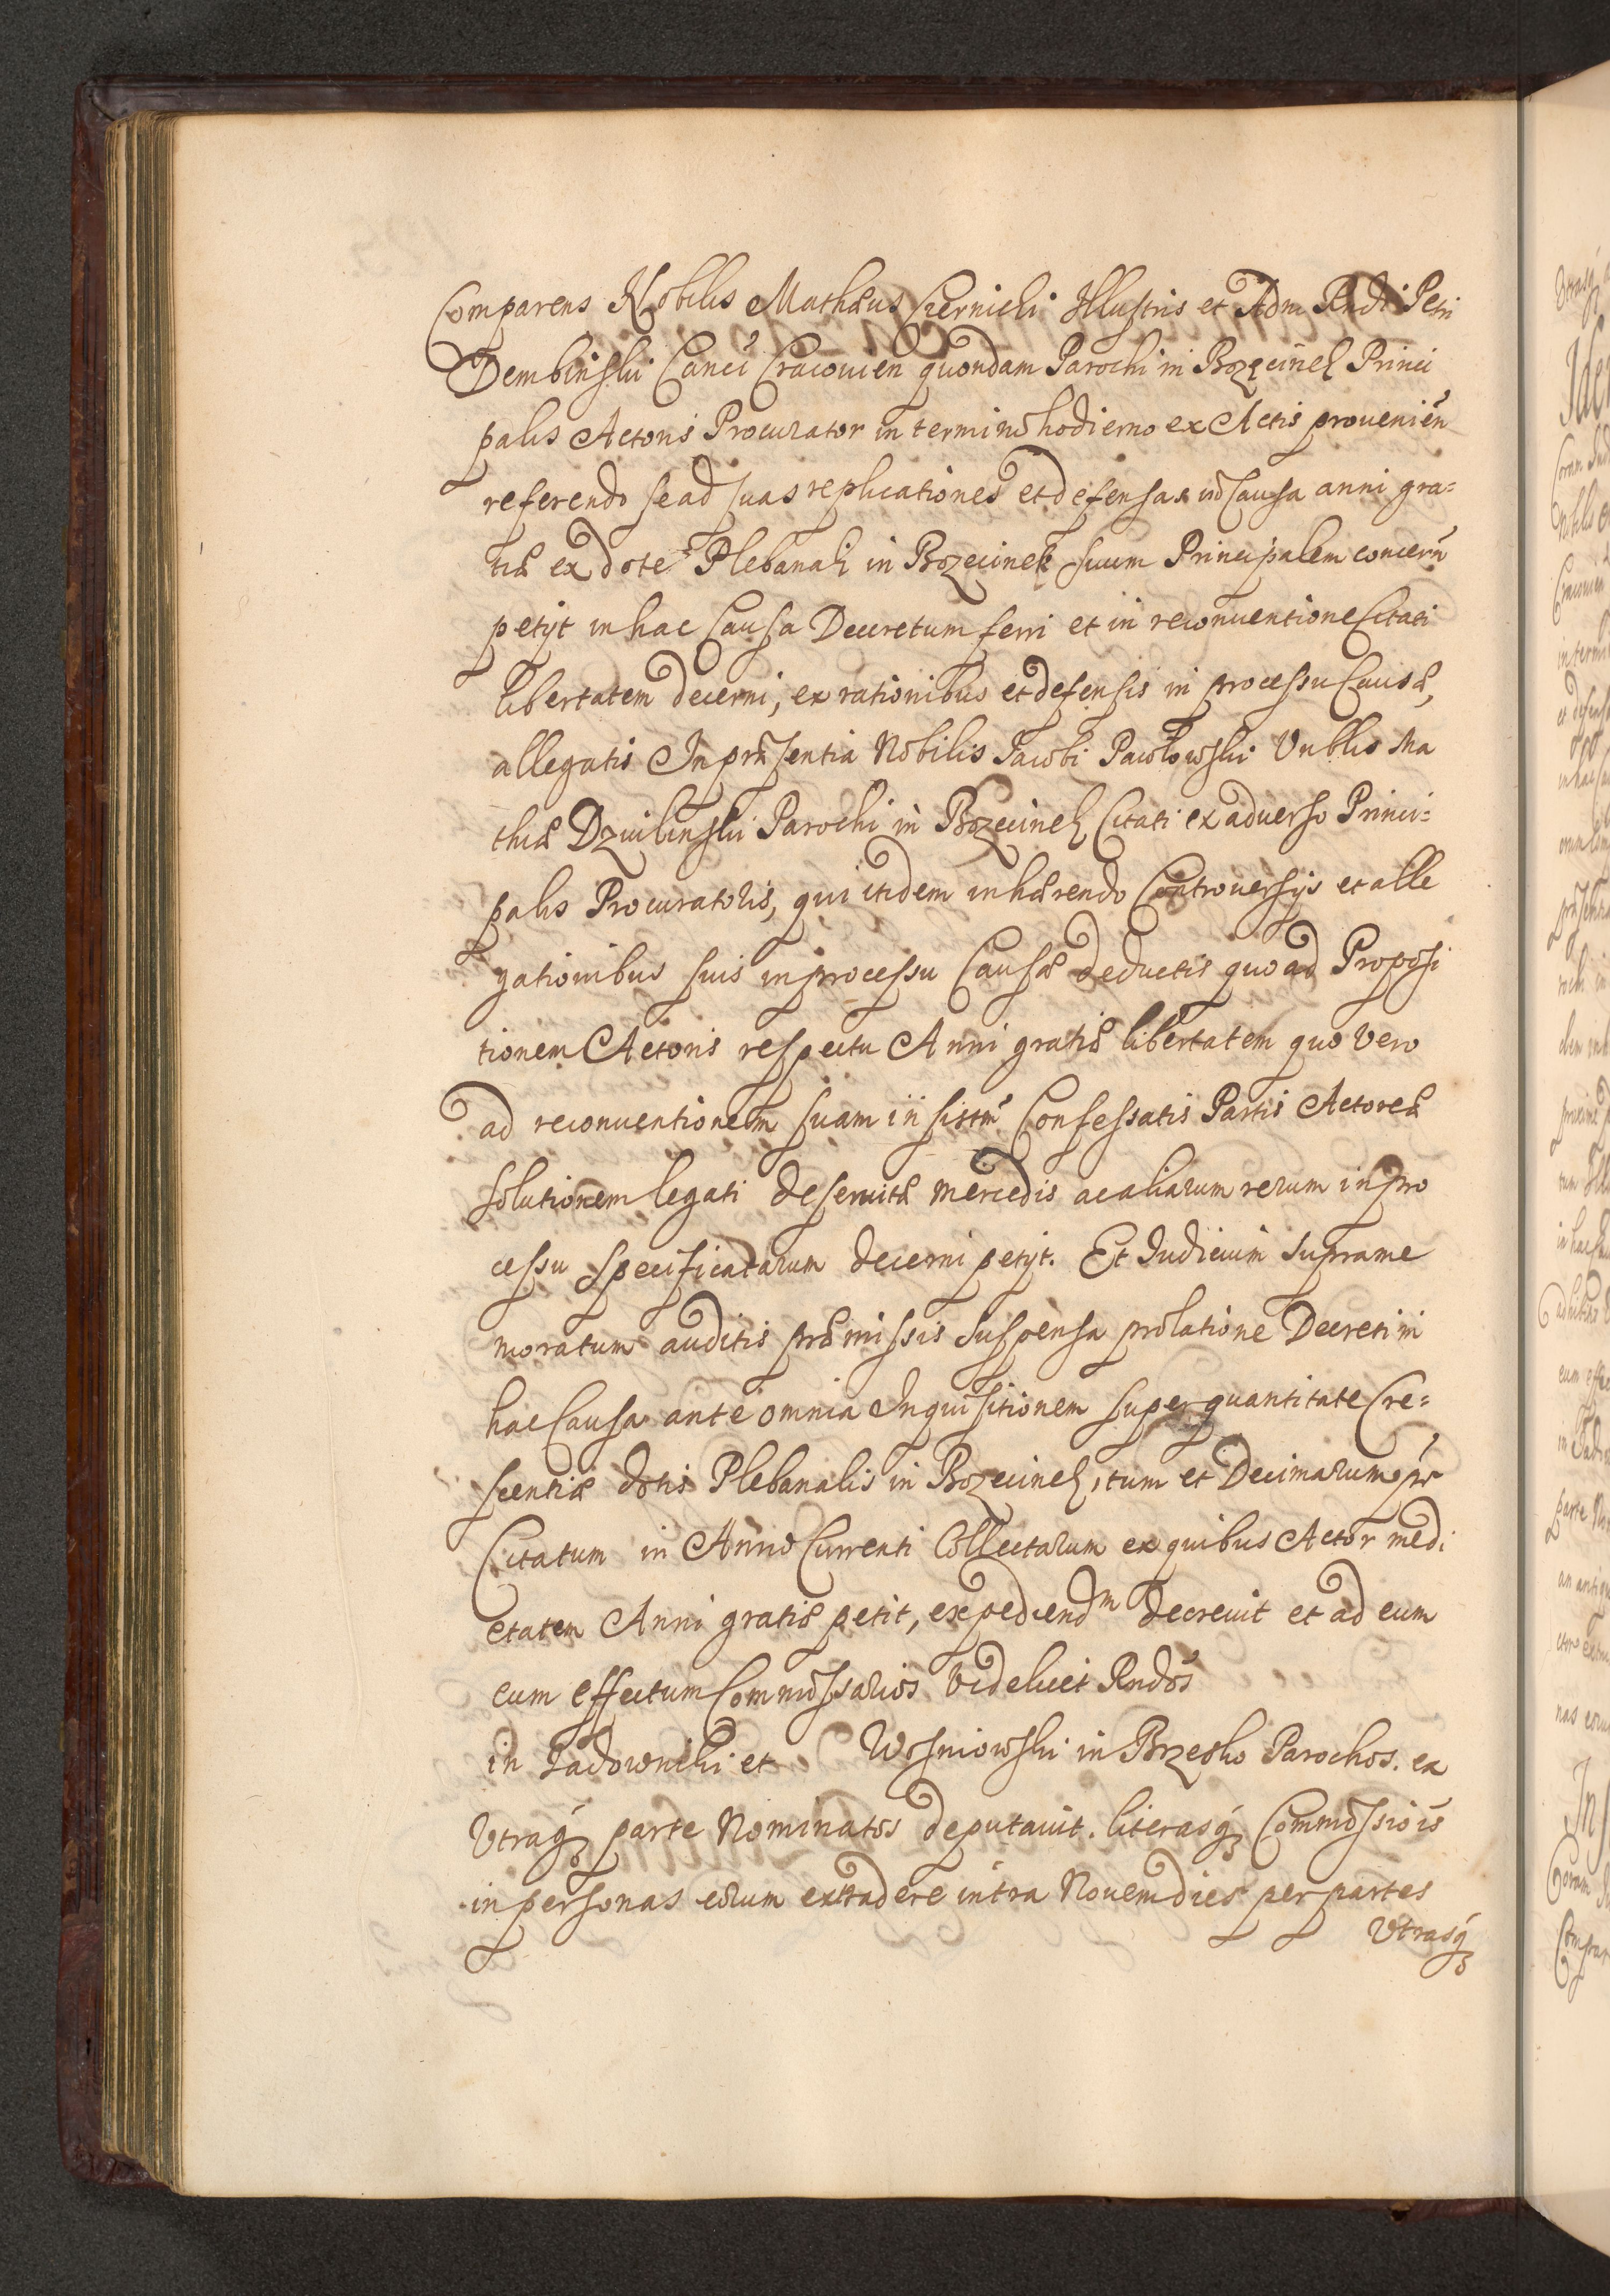 Comparens Nobilis Mathæus Czernicki Illustris et Adm Rndi Petri
Dembinski Canci Cracovien quondam Parochi in Bozęcinek Princi
palis Actoris Procurator in termino hodierno ex Actis provenien
referendo se ad suas replicationes et defensas in Causa anni gra=
tiæ ex dote Plebanali in Bozecinek suum Principalem concern
petyt in hac Causa Decretum ferri et in reconventione Citati
libertatem decerni, ex rationibus et defensis in processu Causæ,
allegatis In præsentia Nobilis Jacobi Pawłowski Vnblis Ma
thiæ Dzwilinski Parochi in Bozecinek Citati ex adverso Princi=
palis Procuratoris, qui itidem inhærendo Controversijs et alle
gationibus suis in processu Causæ deductis quo ad Proposi
tionem Actoris respectu Anni gratiæ libertatem quo vero
ad reconventionem suam insistm Confessatis Partis Actoreæ
solutionem legati deservitæ mercedis ac aliarum rerum in pro
cessu specificatarum decerni petyt. Et Judicium suprame
moratum auditis præmissis suspensa prolatione Decreti in
hac Causa ante omnia Inquisitionem super quantitate Cre=
scentiæ dotis Plebanalis in Bozecinek, tum et Decimarum pr
Citatum in Anno Currenti Collectarum ex quibus Actor medi
etatem Anni gratiæ petit, expediendm decrevit et ad eum
eum effectum Commissarios videlicet Rndos
in Jadowniki et Wosniowski in Brzesko Parochos. ex
Utraq parte Nominatos deputavit. literasq Commissiois
in personas eorum extradere intra Novem dies per partes
Utrasq